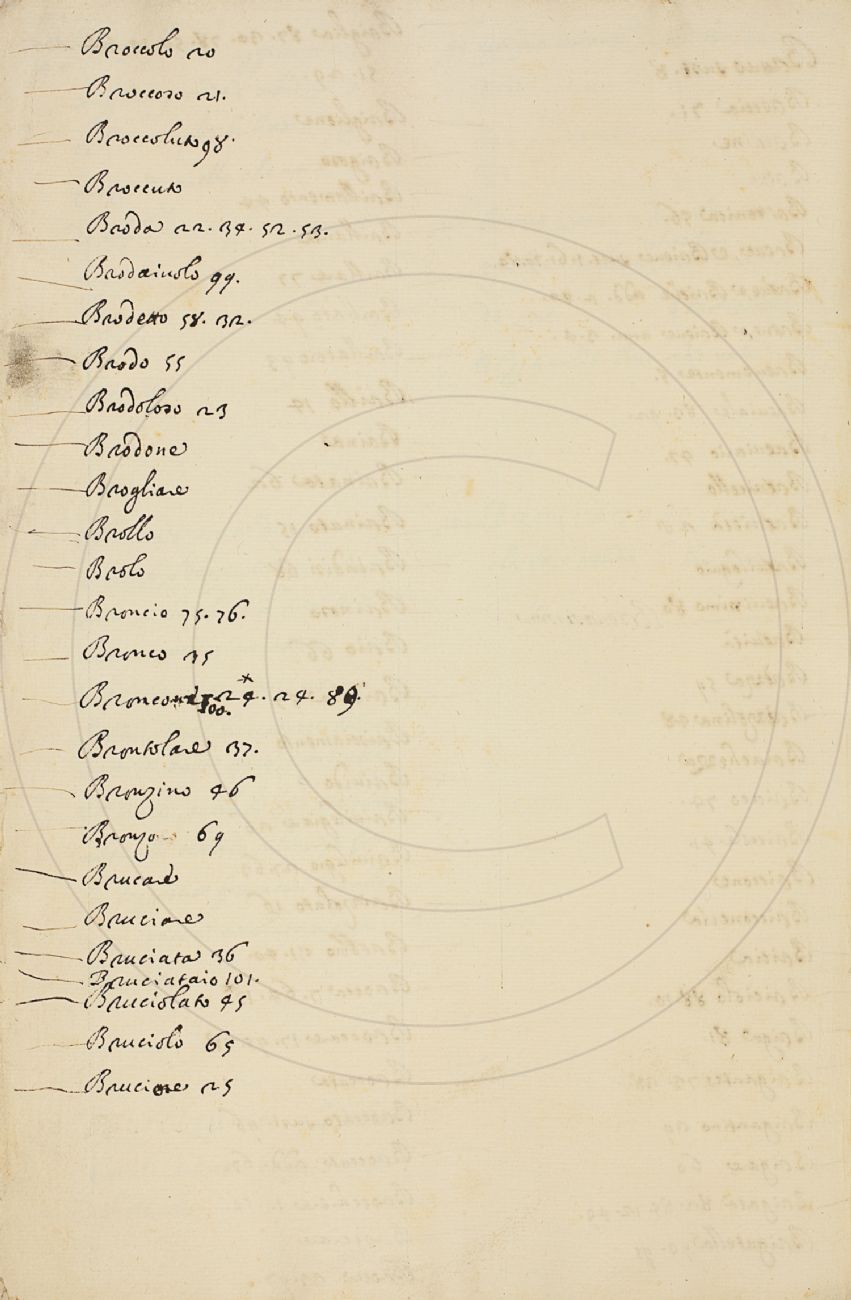 Broccolo 20
Broccoso 21.
Broccoluto 98.
Broccuto
Broda 22. 34. 52. 53.
Brodaiuolo 99.
Brodetto 58. 32.
Brodo 55
Brodoloso 23
Brodone
Brogliare
Brollo
Brolo
Broncio 75. 76.
Bronco 35
24. 24. 89.
100.
Brontolare 37.
Bronzino 46
Bronzo 69
Brucare
Bruciare
Bruciata 36
Bruciataio 101.
Bruciolato 45
Bruciolo 65
Bruciore 25